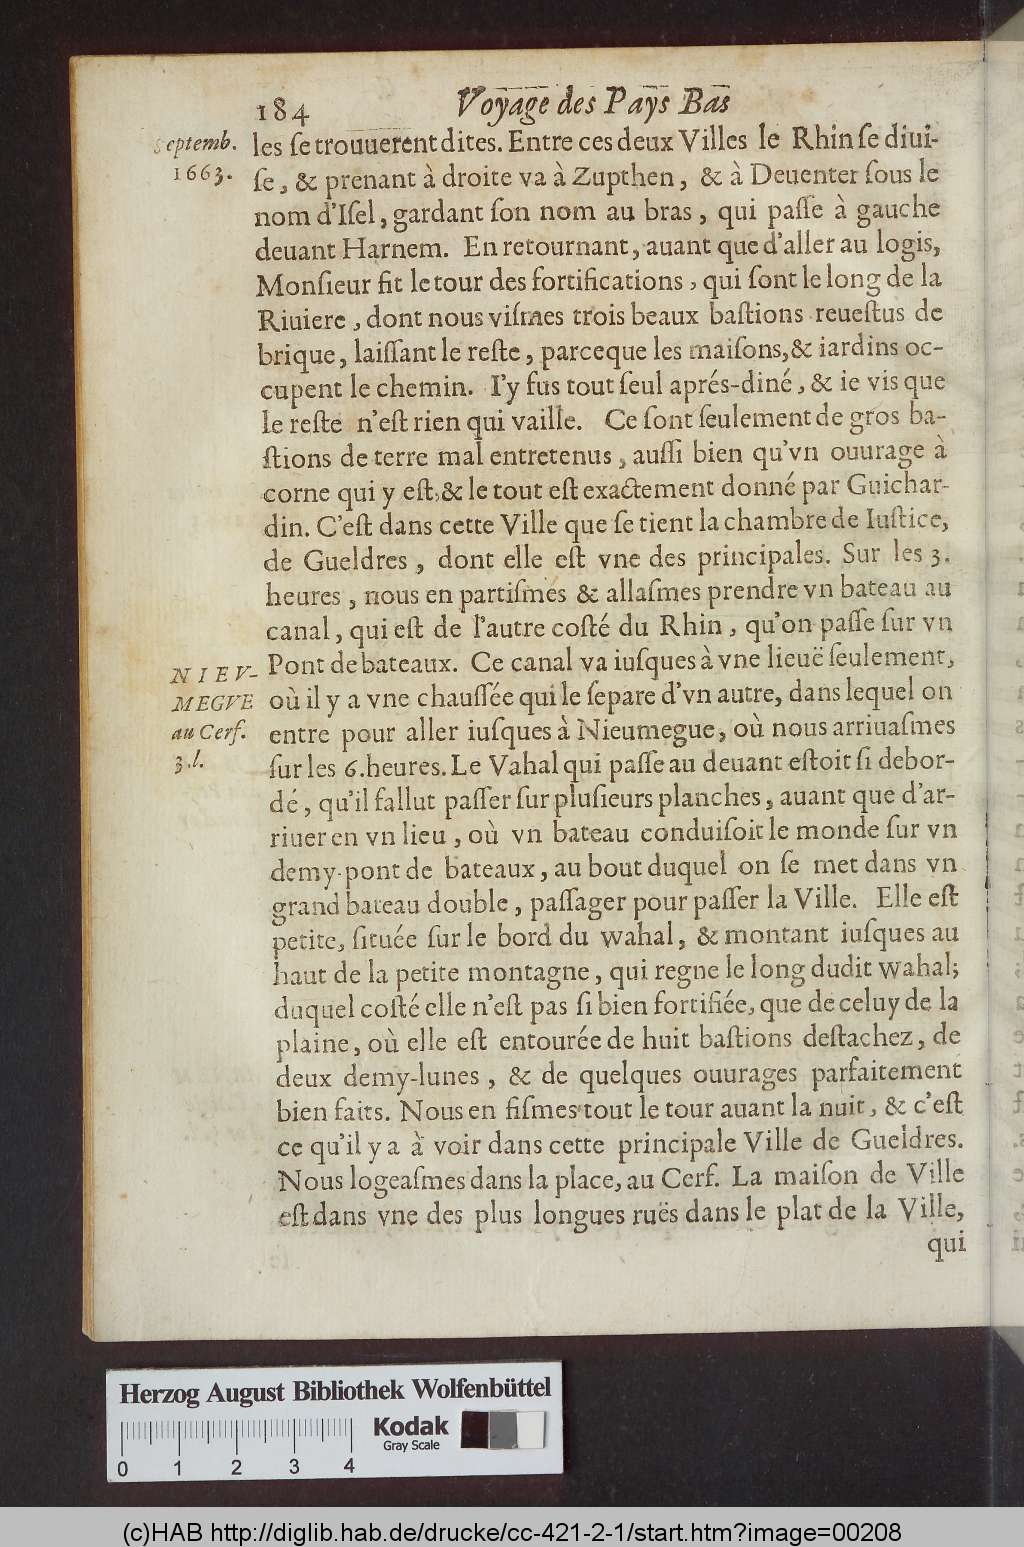 184 Voyage des Pays Bas
Septemb.
1663.
les ſe trouuerent dites. Entre ces deux Villes le Rhin ſe diui-
ſe, & prenant à droite va à Zupthen, & à Deuenter ſous le
nom d'Iſel, gardant ſon nom au bras, qui paſſe à gauche
deuant Harnem. En retournant, auant que d'aller au logis,
Monſieur fit le tour des fortifications, qui ſont le long de la
Riuiere, dont nous viſmes trois beaux baſtions reueſtus de
brique, laiſſant le reſte, parceque les maiſons, & iardins oc-
cupent le chemin. I'y fus tout ſeul aprés-diné, & ie vis que
le reſte n'eſt rien qui vaille. Ce ſont ſeulement de gros ba-
ſtions de terre mal entretenus, auſſi bien qu'vn ouurage à
corne qui y eſt, & le tout eſt exactement donné par Guichar-
din. C'eſt dans cette Ville que ſe tient la chambre de Iuſtice,
de Gueldres, dont elle eſt vne des principales. Sur les 3.
heures, nous en partiſmes & allaſmes prendre vn bateau au
canal, qui eſt de l'autre coſté du Rhin, qu'on paſſe ſur vn
NIEV-
MEGVE
au Cerf.
3. l.
Pont de bateaux. Ce canal va iuſques à vne lieuë ſeulement,
où il y a vne chauſſée qui le ſepare d'vn autre, dans lequel on
entre pour aller iuſques à Nieumegue, où nous arriuaſmes
ſur les 6. heures. Le Vahal qui paſſe au deuant eſtoit ſi debor-
dé, qu'il fallut paſſer ſur pluſieurs planches, auant que d'ar-
riuer en vn lieu, où vn bateau conduiſoit le monde ſur vn
demy-pont de bateaux, au bout duquel on ſe met dans vn
grand bateau double, paſſager pour paſſer la Ville. Elle eſt
petite, ſituée ſur le bord du wahal, & montant iuſques au
haut de la petite montagne, qui regne le long dudit wahal;
duquel coſté elle n'eſt pas ſi bien fortifiée, que de celuy de la
plaine, où elle eſt entourée de huit baſtions deſtachez, de
deux demy-lunes, & de quelques ouurages parfaitement
bien faits. Nous en fiſmes tout le tour auant la nuit, & c'eſt
ce qu'il y a à voir dans cette principale Ville de Gueldres.
Nous logeaſmes dans la place, au Cerf. La maiſon de Ville
eſt dans vne des plus longues ruës dans le plat de la Ville,
qui
Herzog August Bibliothek Wolfenbüttel
Kodak
Gray Scale
0 1 2 3 4
(c)HAB http://diglib.hab.de/drucke/cc-421-2-1/start.htm?image=00208